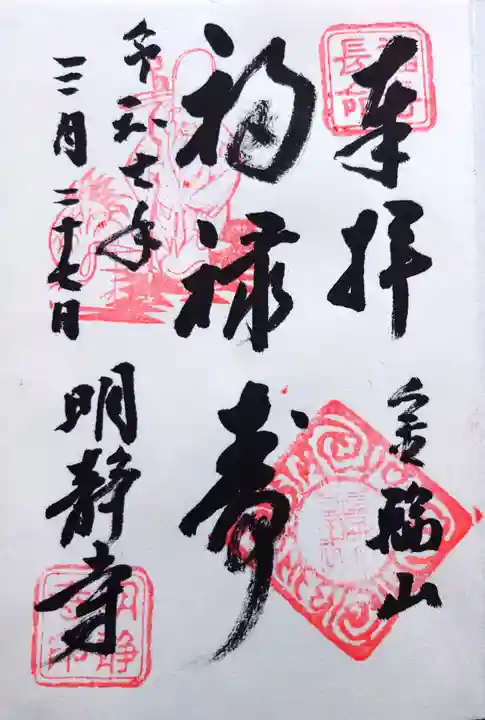 奉拝
金
山
福禄寿
令和七年
三月二十七日
明静寺
長命
明静
寺印